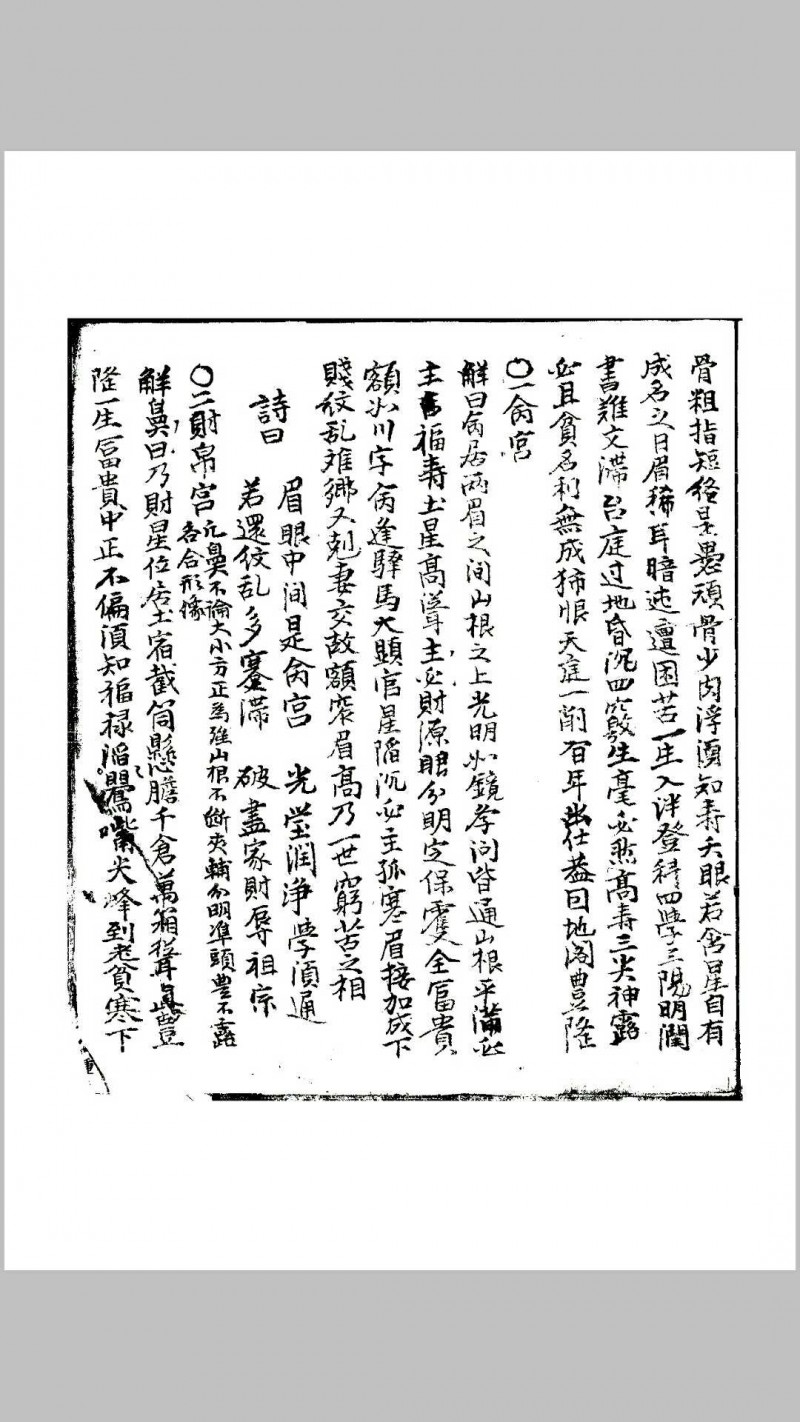 骨粗指短終是愚頑骨少肉浮須知壽夭眼若含星自有
成名之日眉稀耳暗迍邅困苦一生入泮登科四學三陽明潤
書難文滯台庭过地昏沉四竅生毫必然髙壽三尖神露
必且貧名利無成猶恨天庭一削百年出仕葢曰地阁豊隆
〇一命宫
解曰命居两眉之间山根之上光明如鏡孝问皆通山根平满必
主福壽土星髙聳主必財源眼分明定保雙全冨貴
額如川字命逢驛馬大顕官星陷沉必主孤寒眉接加成下
賤紋乱难鄉又剋妻交故額窄眉髙乃一世窮苦之相
詩曰 眉眼中间是命宫 光莹润浄孝湏通
若還紋乱多蹇滞 破盡家財辱祖宗
〇二財帛宫 亢鼻不論大小方正為雅山根不断夾輔分明凖頭豊不露
各合形像
解鼻曰乃財星位居土宿截筒懸膽千倉萬箱聳直豊
隆一生冨貴中正不偏湏知福禄滔鷹嘴尖峰到老貧寒下